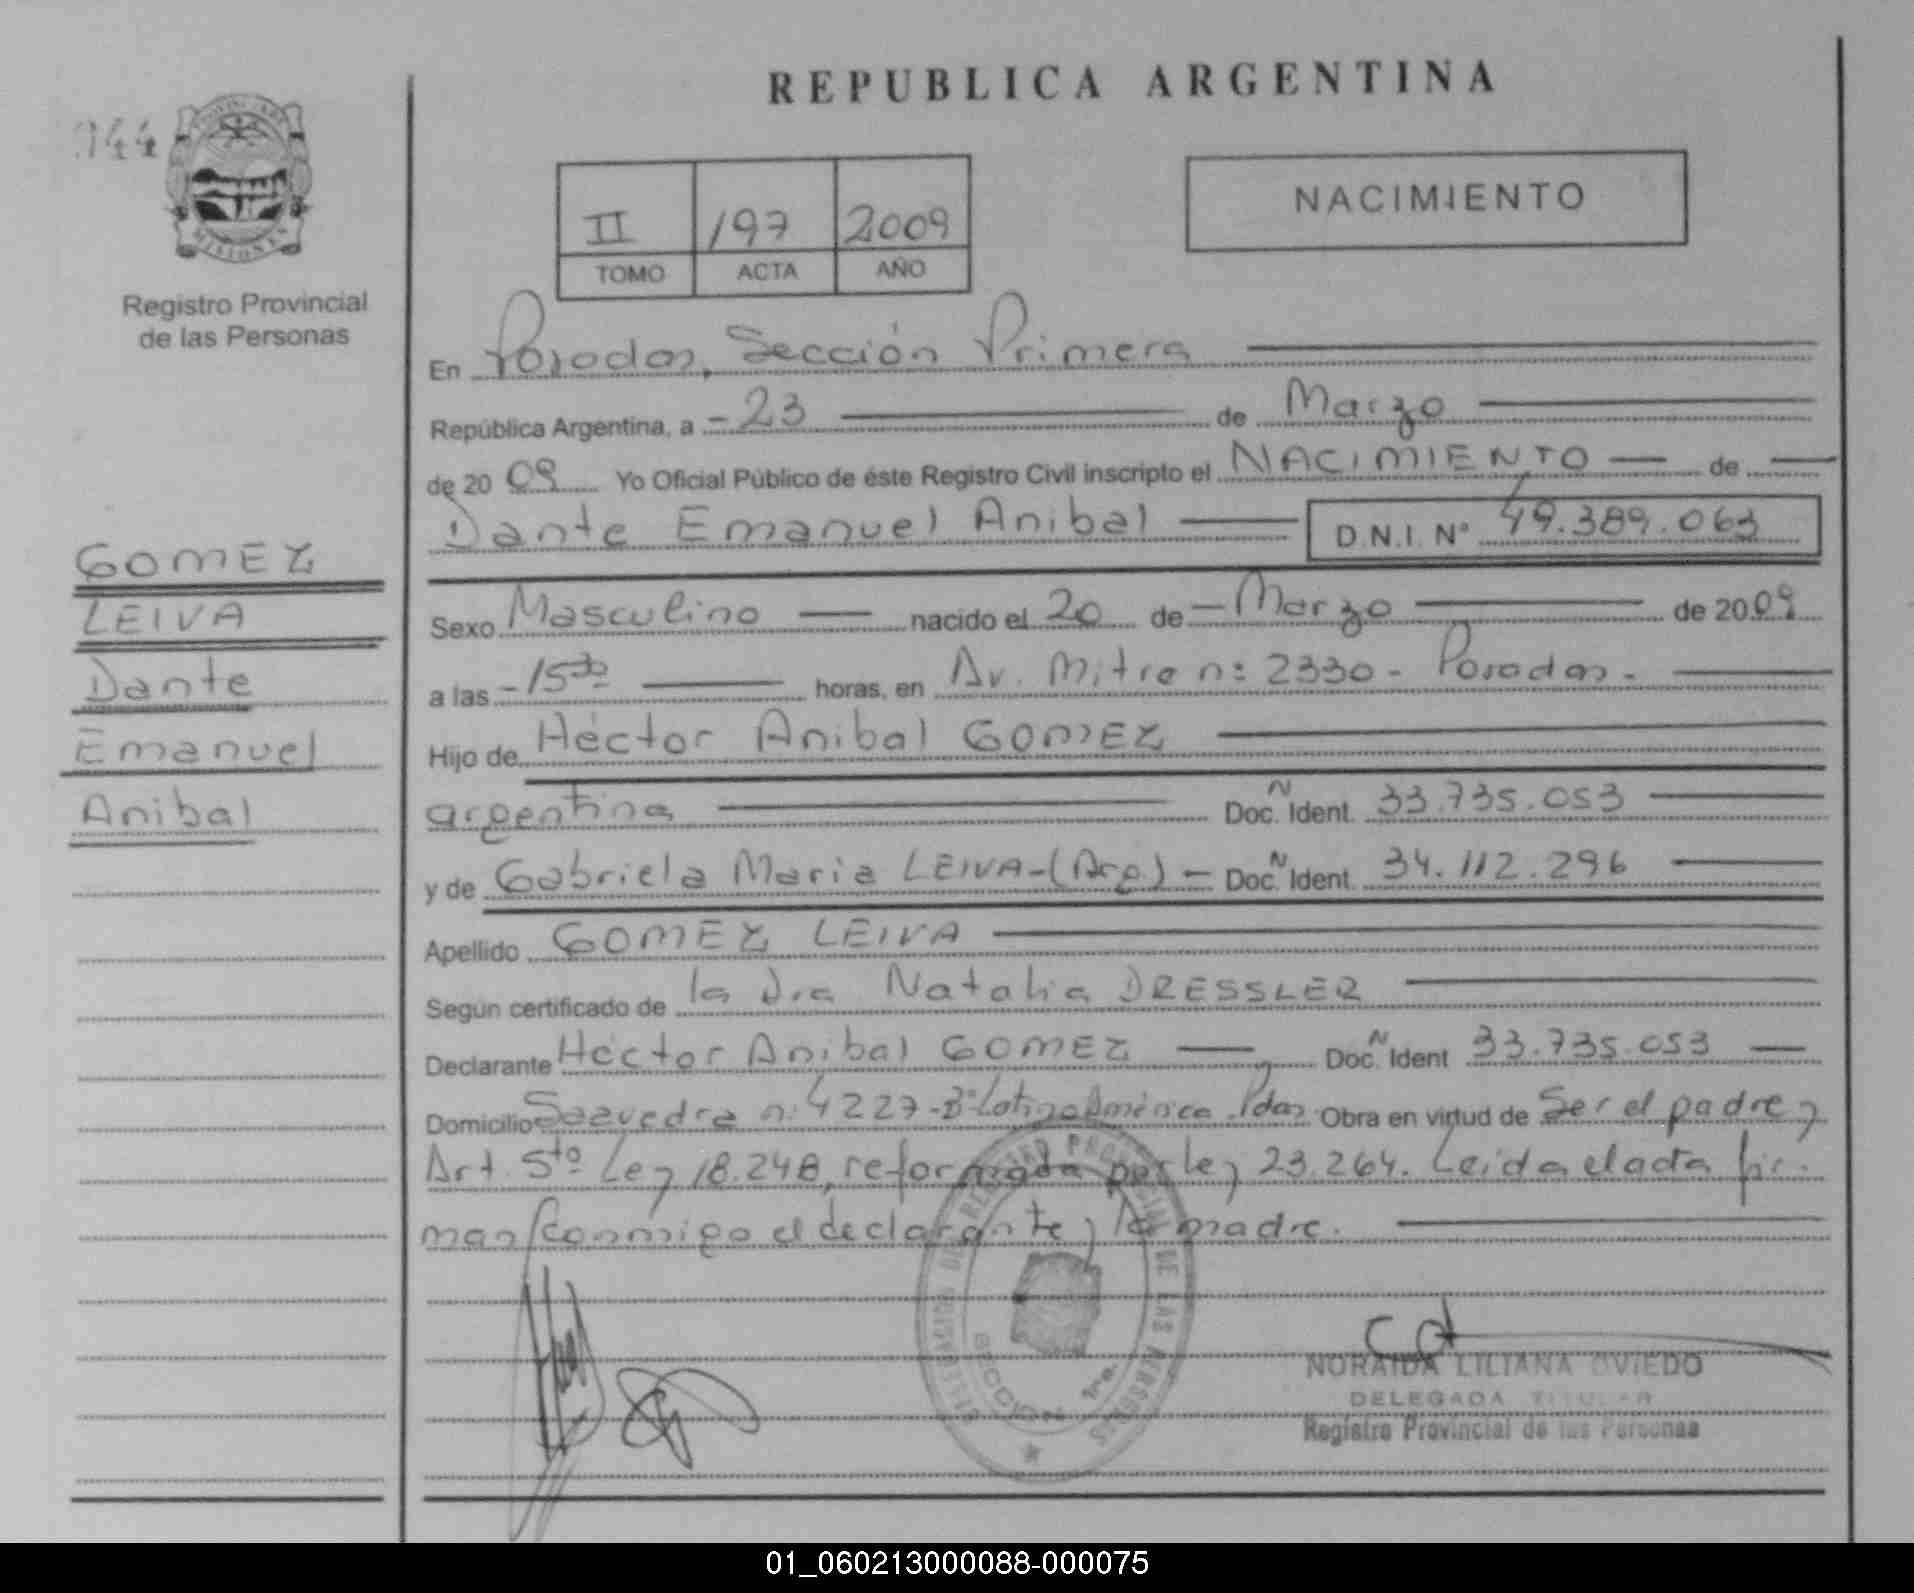 REPUBLICA ARGENTINA
944
PROVINCIA DE
MISIONES
Registro Provincial
de las Personas
II 197 2009
TOMO ACTA AÑO
NACIMIENTO
En Posadas, Sección Primera
República Argentina, a -23 de Marzo
de 20 09 Yo Oficial Público de éste Registro Civil inscripto el NACIMIENTO de
Dante Emanuel Anibal D.N.I. N° 49.389.063
GOMEZ
LEIVA
Dante
Emanuel
Anibal
Sexo Masculino nacido el 20 de Marzo de 2009
a las -15 horas, en Av. Mitre n: 2330 - Posadas.
Hijo de Héctor Anibal GOMEZ
argentina Doc. N Ident. 33.735.053
y de Gabriela Maria LEIVA-(Arg.) - Doc. N Ident. 34.112.296
Apellido GOMEZ LEIVA
Según certificado de la Dra Natalia DRESSLER
Declarante Héctor Anibal GOMEZ Doc. N Ident 33.735.053
Domicilio Saavedra n: 4227-B° Latinoamérica Pdas Obra en virtud de Ser el padre y
Art. 5to Ley 18.248, reformada por ley 23.264. Leida el acta fir-
man conmigo el declarante y la madre.
DELEGACION DEL REGISTRO PROVINCIAL DE LAS PERSONAS
SECCION 1ra.
NORAIDA LILIANA OVIEDO
DELEGADA TITULAR
Registro Provincial de las Personas
01_060213000088-000075